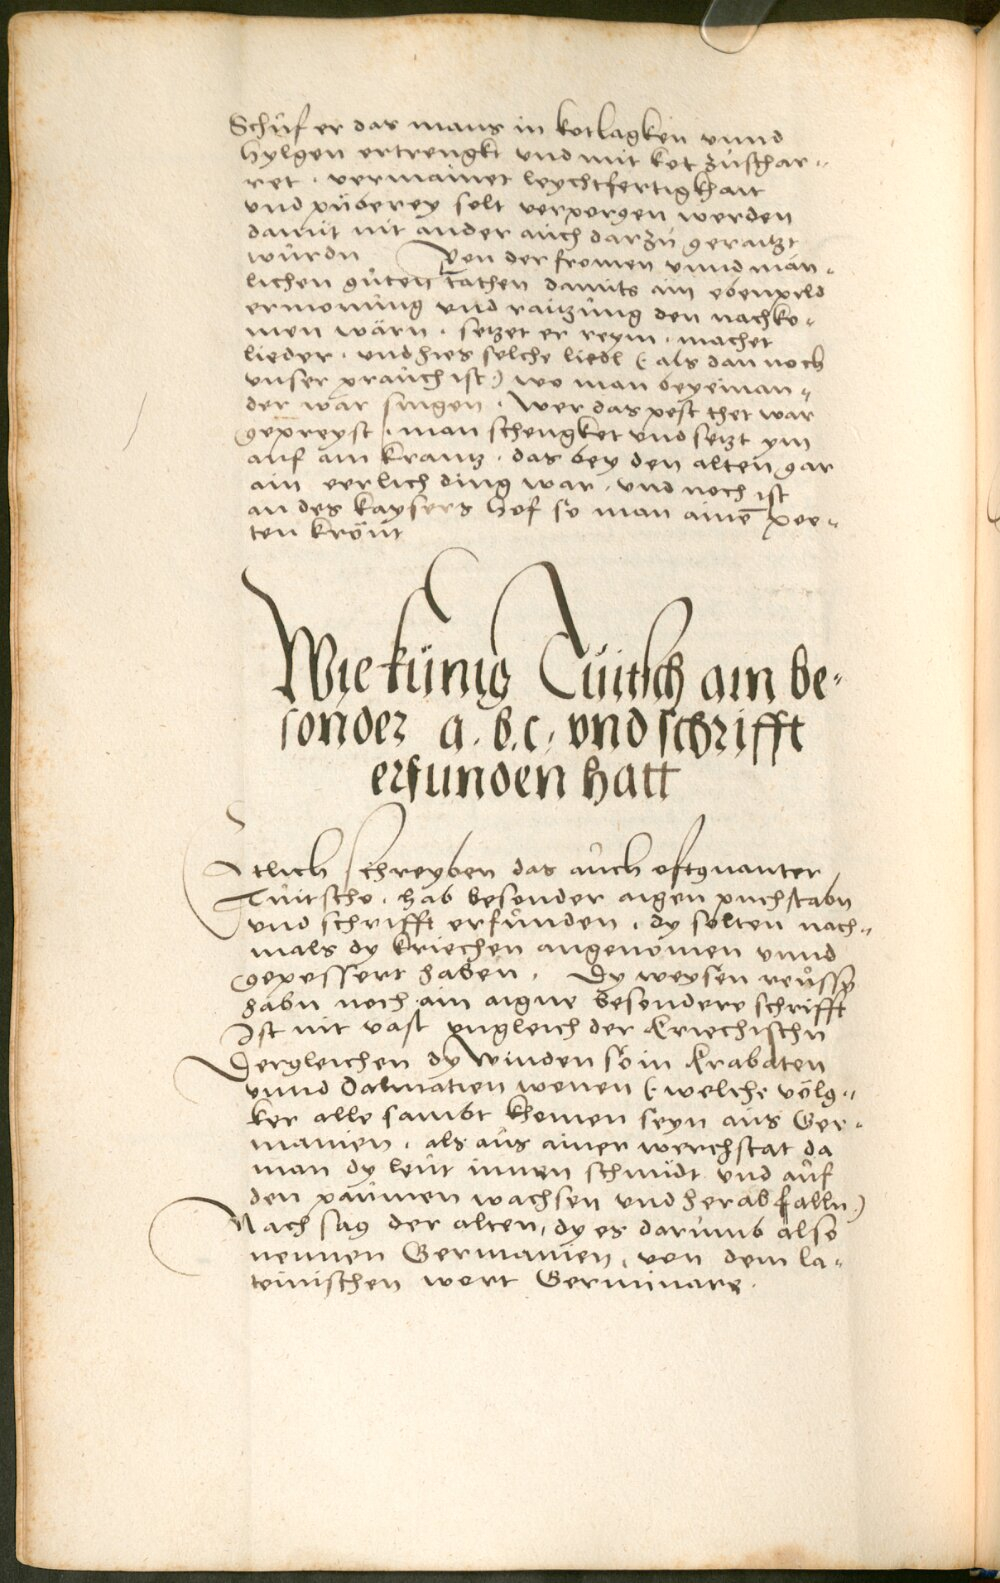 Schůf er das mans in kotlagken vnnd
hylgen ertrengkt vnd mit kot zůschar-
ret . vermainet leychtfertigkhait
vnd půberey solt verporgen werden
damit nit ander auch darzů geraitzt
wůrdn Von der fromen vnnd män-
lichen gůten tathen damits ain ebenpild
ermonůng vnd raitzůng den nachko-
men wärn . setzet er reym . machet
lieder . vnd hies solche liedl (als dan noch
vnser prauch ist) wo man beyeinan-
der war singen . Wer das pest thet war
gepreyst . man schengket vnd setzt ym
auf ain krantz . das bey den alten gar
ain eerlich ding war . vnd noch ist
an des kaysers hof so man ainē poe-
ten krönt
Wie künig Tuitsch ain be-
sonder a . b . c . vnd schrifft
erfunden hatt
Etlich schreyben das aůch oftgnanter
Tůitscho . hab besonder aigen puchstabn
vnd schrifft erfůnden . dy solten nach-
mals dy kriechen angenomen vnnd
gepessert haben . Dy weysen reůssn
habn noch ain aigne besondere schrifft
Ist nit vast vngleich der kriechischn
Dergleichen dy Winden so in Krabaten
vnnd Dalmatien wonen (welche völg-
ker alle sambt khomen seyn aus Ger-
manien . als aůs ainer werchstat da
man dy leůt innen schmidt vnd aůf
den päumen wachsen vnd herab falln)
Nach sag der alten, dy es darůmb also
nennen Germanien, von dem la-
teinischen wort Germinare .